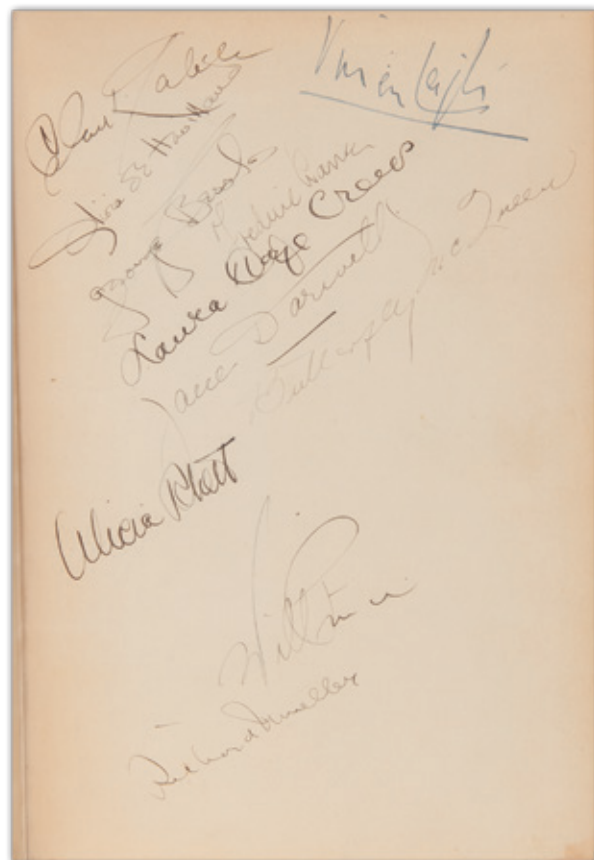 Clark Gable
Vivien Leigh
Olivia de Havilland
George Bessolo
Fredric Crane
Laura Hope Crews
Jane Darwell
Butterfly McQueen
Alicia Rhett
Will Price
Richard Mueller